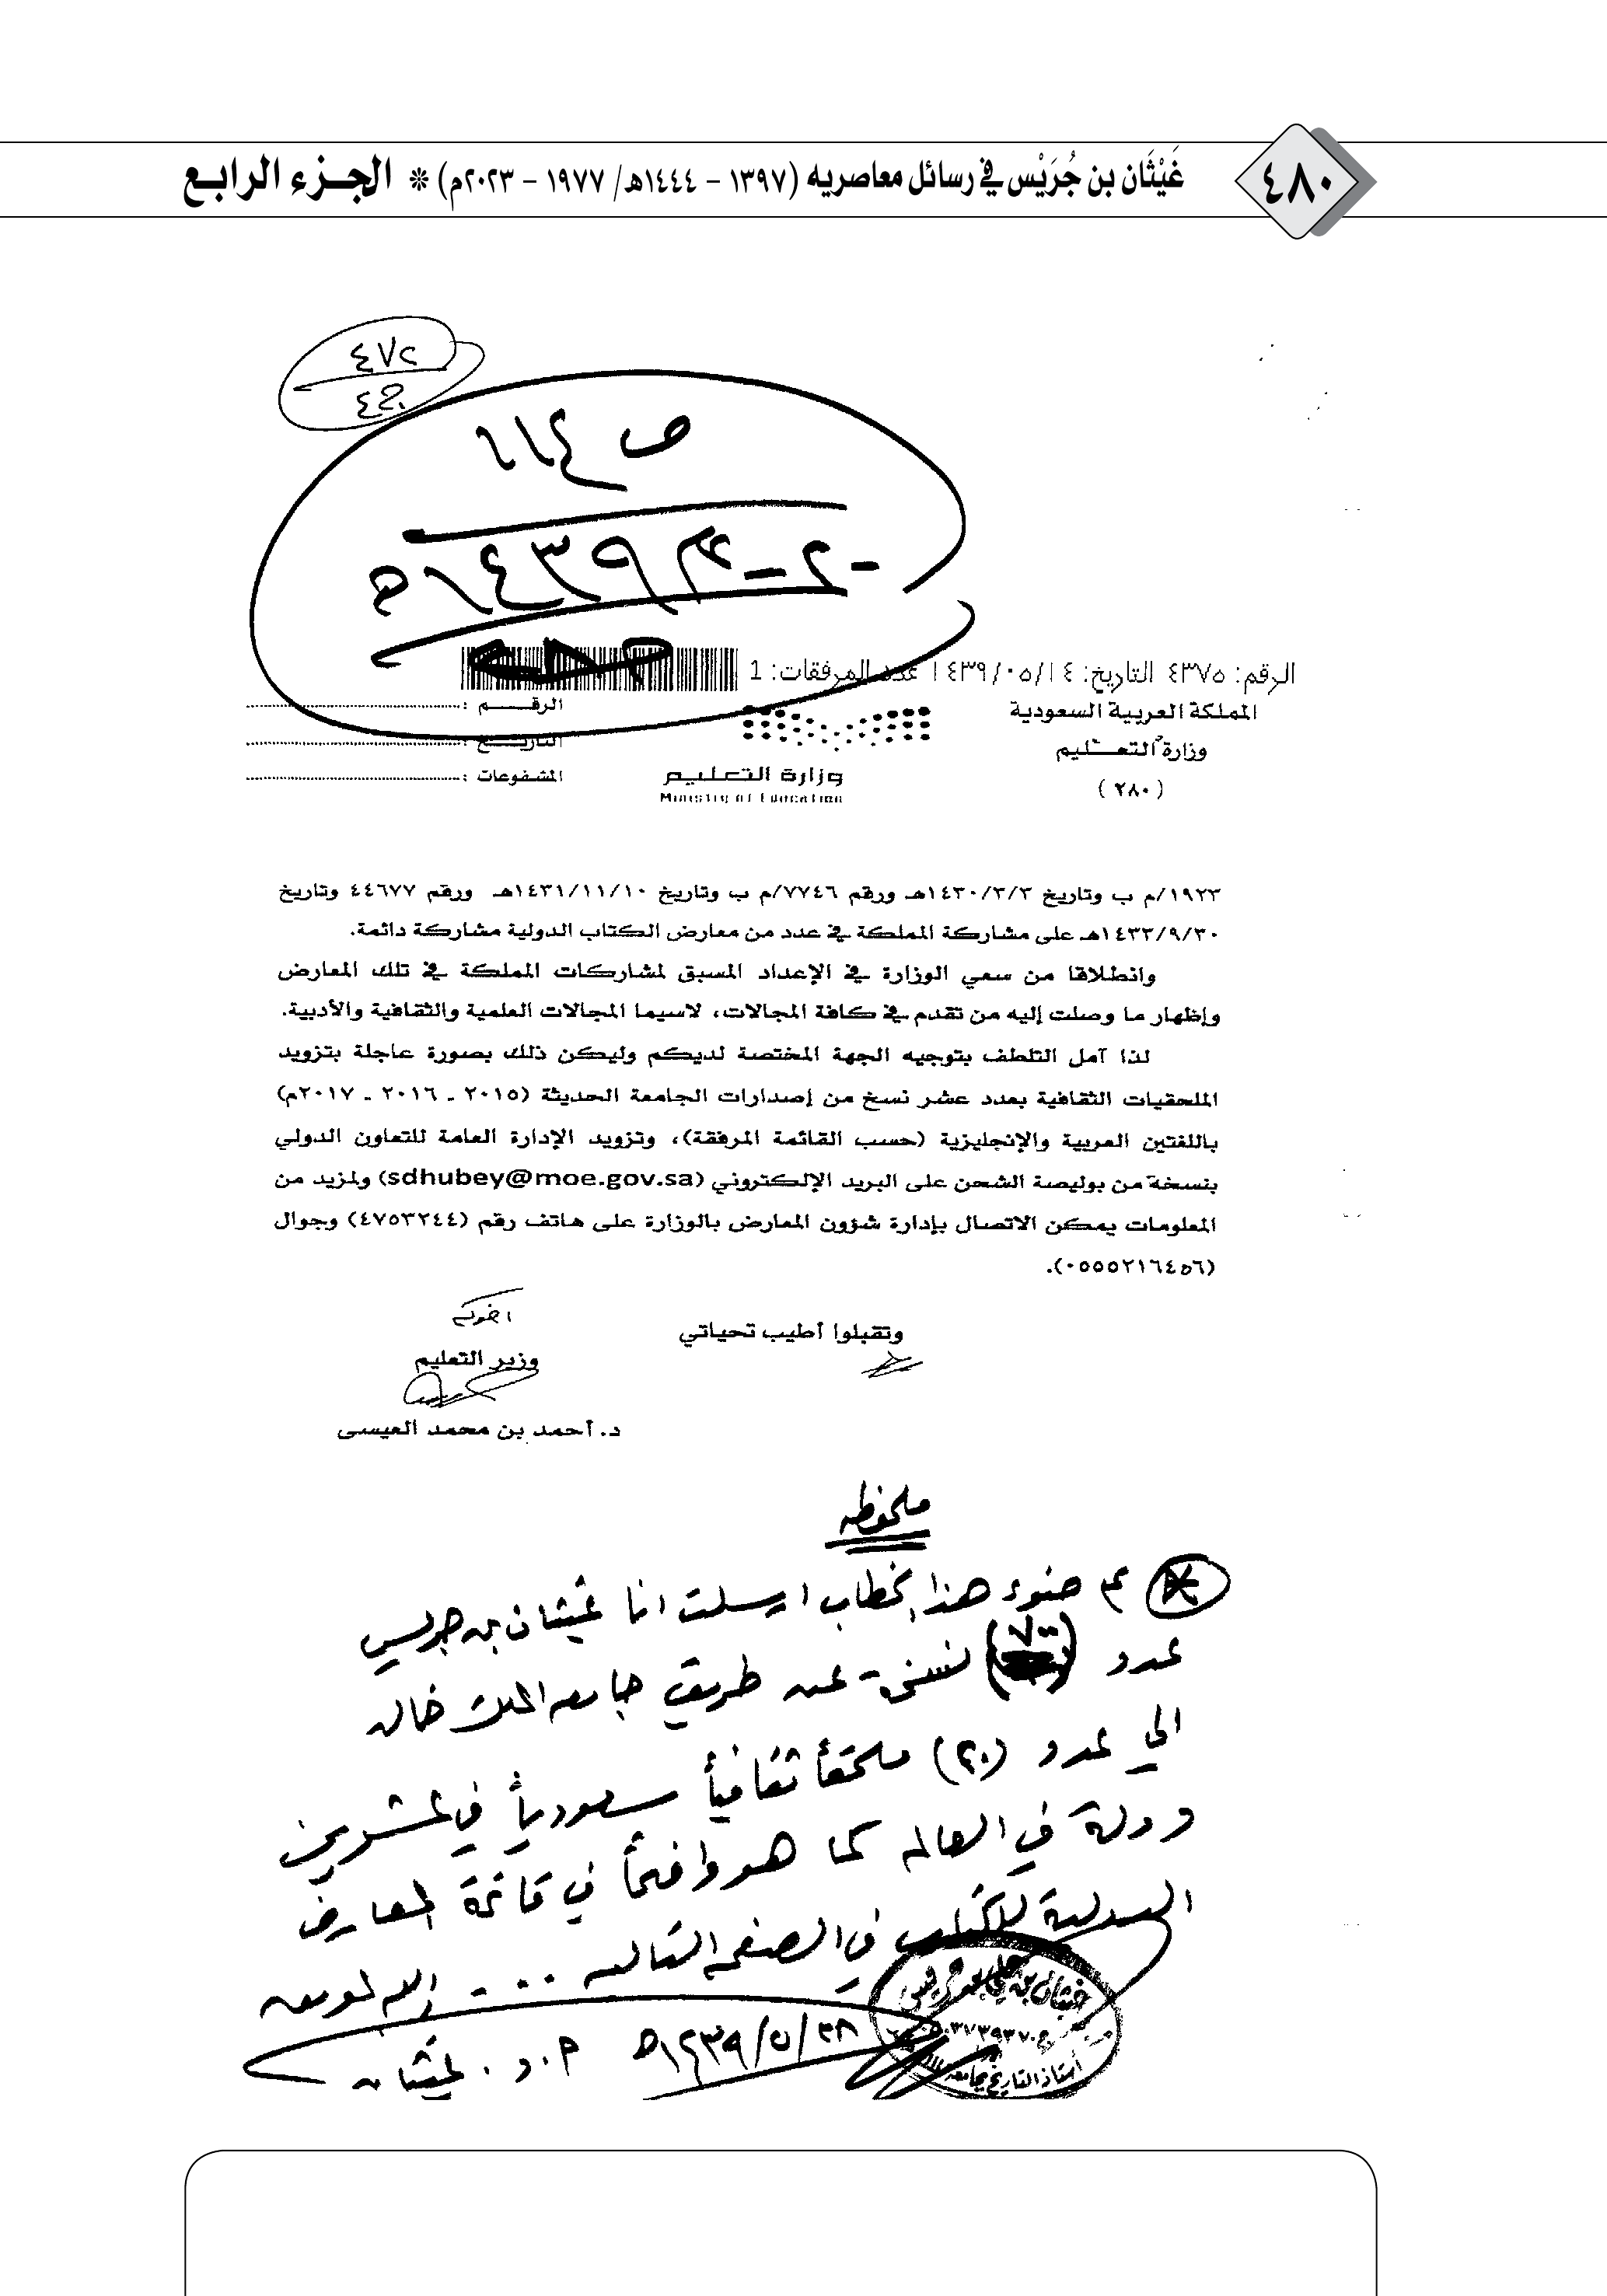 ٤٨٠
غَيْثَان بن جُرَيْس في رسائل معاصريه (١٣٩٧ – ١٤٤٤هـ/ ١٩٧٧ – ٢٠٢٣م) ❊ الجـزء الرابـع
٤٧٢
ص ١١٤
الرقم: ٤٣٧٥ التاريخ: ١٤٣٩/٠٥/١٤ عدد المرفقات: 1
المملكة العربية السعودية
وزارة التعـــليم
(٢٨٠)
وزارة التعليم
Ministry of Education
الرقـــــم :
التاريـــخ :
المشفوعات :
١٩٢٣/م ب وتاريخ ١٤٣٠/٣/٣هـ ورقم ٧٧٤٦/م ب وتاريخ ١٤٣١/١١/١٠هـ ورقم ٤٤٦٧٧ وتاريخ
١٤٣٣/٩/٣٠هـ على مشاركة المملكة في عدد من معارض الكتاب الدولية مشاركة دائمة.
وانطلاقا من سعي الوزارة في الإعداد المسبق لمشاركات المملكة في تلك المعارض
وإظهار ما وصلت إليه من تقدم في كافة المجالات، لاسيما المجالات العلمية والثقافية والأدبية.
لذا آمل التلطف بتوجيه الجهة المختصة لديكم وليكن ذلك بصورة عاجلة بتزويد
الملحقيات الثقافية بعدد عشر نسخ من إصدارات الجامعة الحديثة (٢٠١٥ ـ ٢٠١٦ ـ ٢٠١٧م)
باللغتين العربية والإنجليزية (حسب القائمة المرفقة)، وتزويد الإدارة العامة للتعاون الدولي
بنسخة من بوليصة الشحن على البريد الإلكتروني (sdhubey@moe.gov.sa) ولمزيد من
المعلومات يمكن الاتصال بإدارة شؤون المعارض بالوزارة على هاتف رقم (٤٧٥٣٢٤٤) وجوال
(٠٥٥٥٢١٦٤٥٦).
وتقبلوا أطيب تحياتي
اخوكم
وزير التعليم
د. أحمد بن محمد العيسى
ملحوظه
ضوء هذا الخطاب ارسلت انا غيثان بن جريس
عدد نسخة عن طريق جامعه الملك خالد
الى عدد (٢٠) ملحقاً ثقافياً سعودياً في عشرين
دولة في العالم كما هو واضحاً في قائمة المعارض
الدولية للكتاب في الصفحه التاليه ... والله الموفق
أ.د. غيثان ١٤٣٩/٥/٢٨هـ
غيثان بن علي بن جريس
أستاذ التاريخ بجامعة